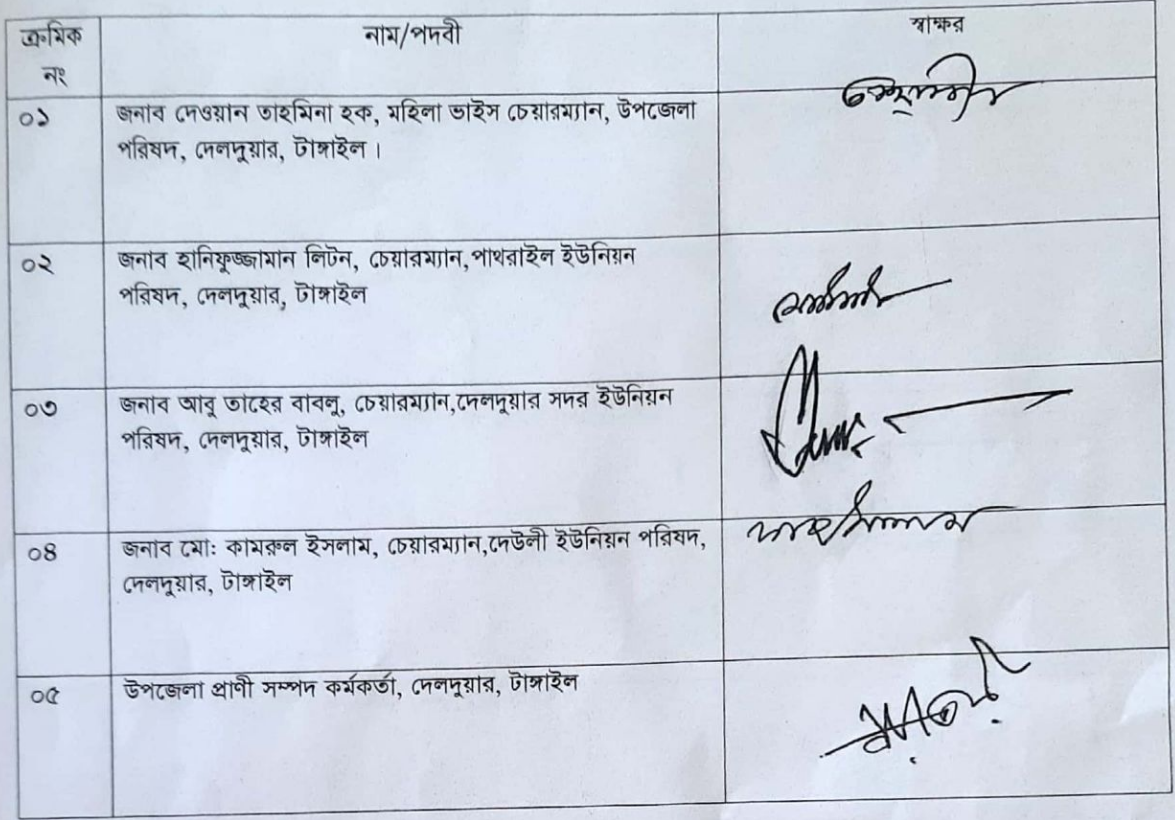 ক্রমিক নং
নাম/পদবী
স্বাক্ষর
০১
জনাব দেওয়ান তাহমিনা হক, মহিলা ভাইস চেয়ারম্যান, উপজেলা
পরিষদ, দেলদুয়ার, টাঙ্গাইল।
০২
জনাব হানিফুজ্জামান লিটন, চেয়ারম্যান,পাথরাইল ইউনিয়ন
পরিষদ, দেলদুয়ার, টাঙ্গাইল
০৩
জনাব আবু তাহের বাবলু, চেয়ারম্যান,দেলদুয়ার সদর ইউনিয়ন
পরিষদ, দেলদুয়ার, টাঙ্গাইল
০৪
জনাব মো: কামরুল ইসলাম, চেয়ারম্যান,দেউলী ইউনিয়ন পরিষদ,
দেলদুয়ার, টাঙ্গাইল
০৫
উপজেলা প্রাণী সম্পদ কর্মকর্তা, দেলদুয়ার, টাঙ্গাইল